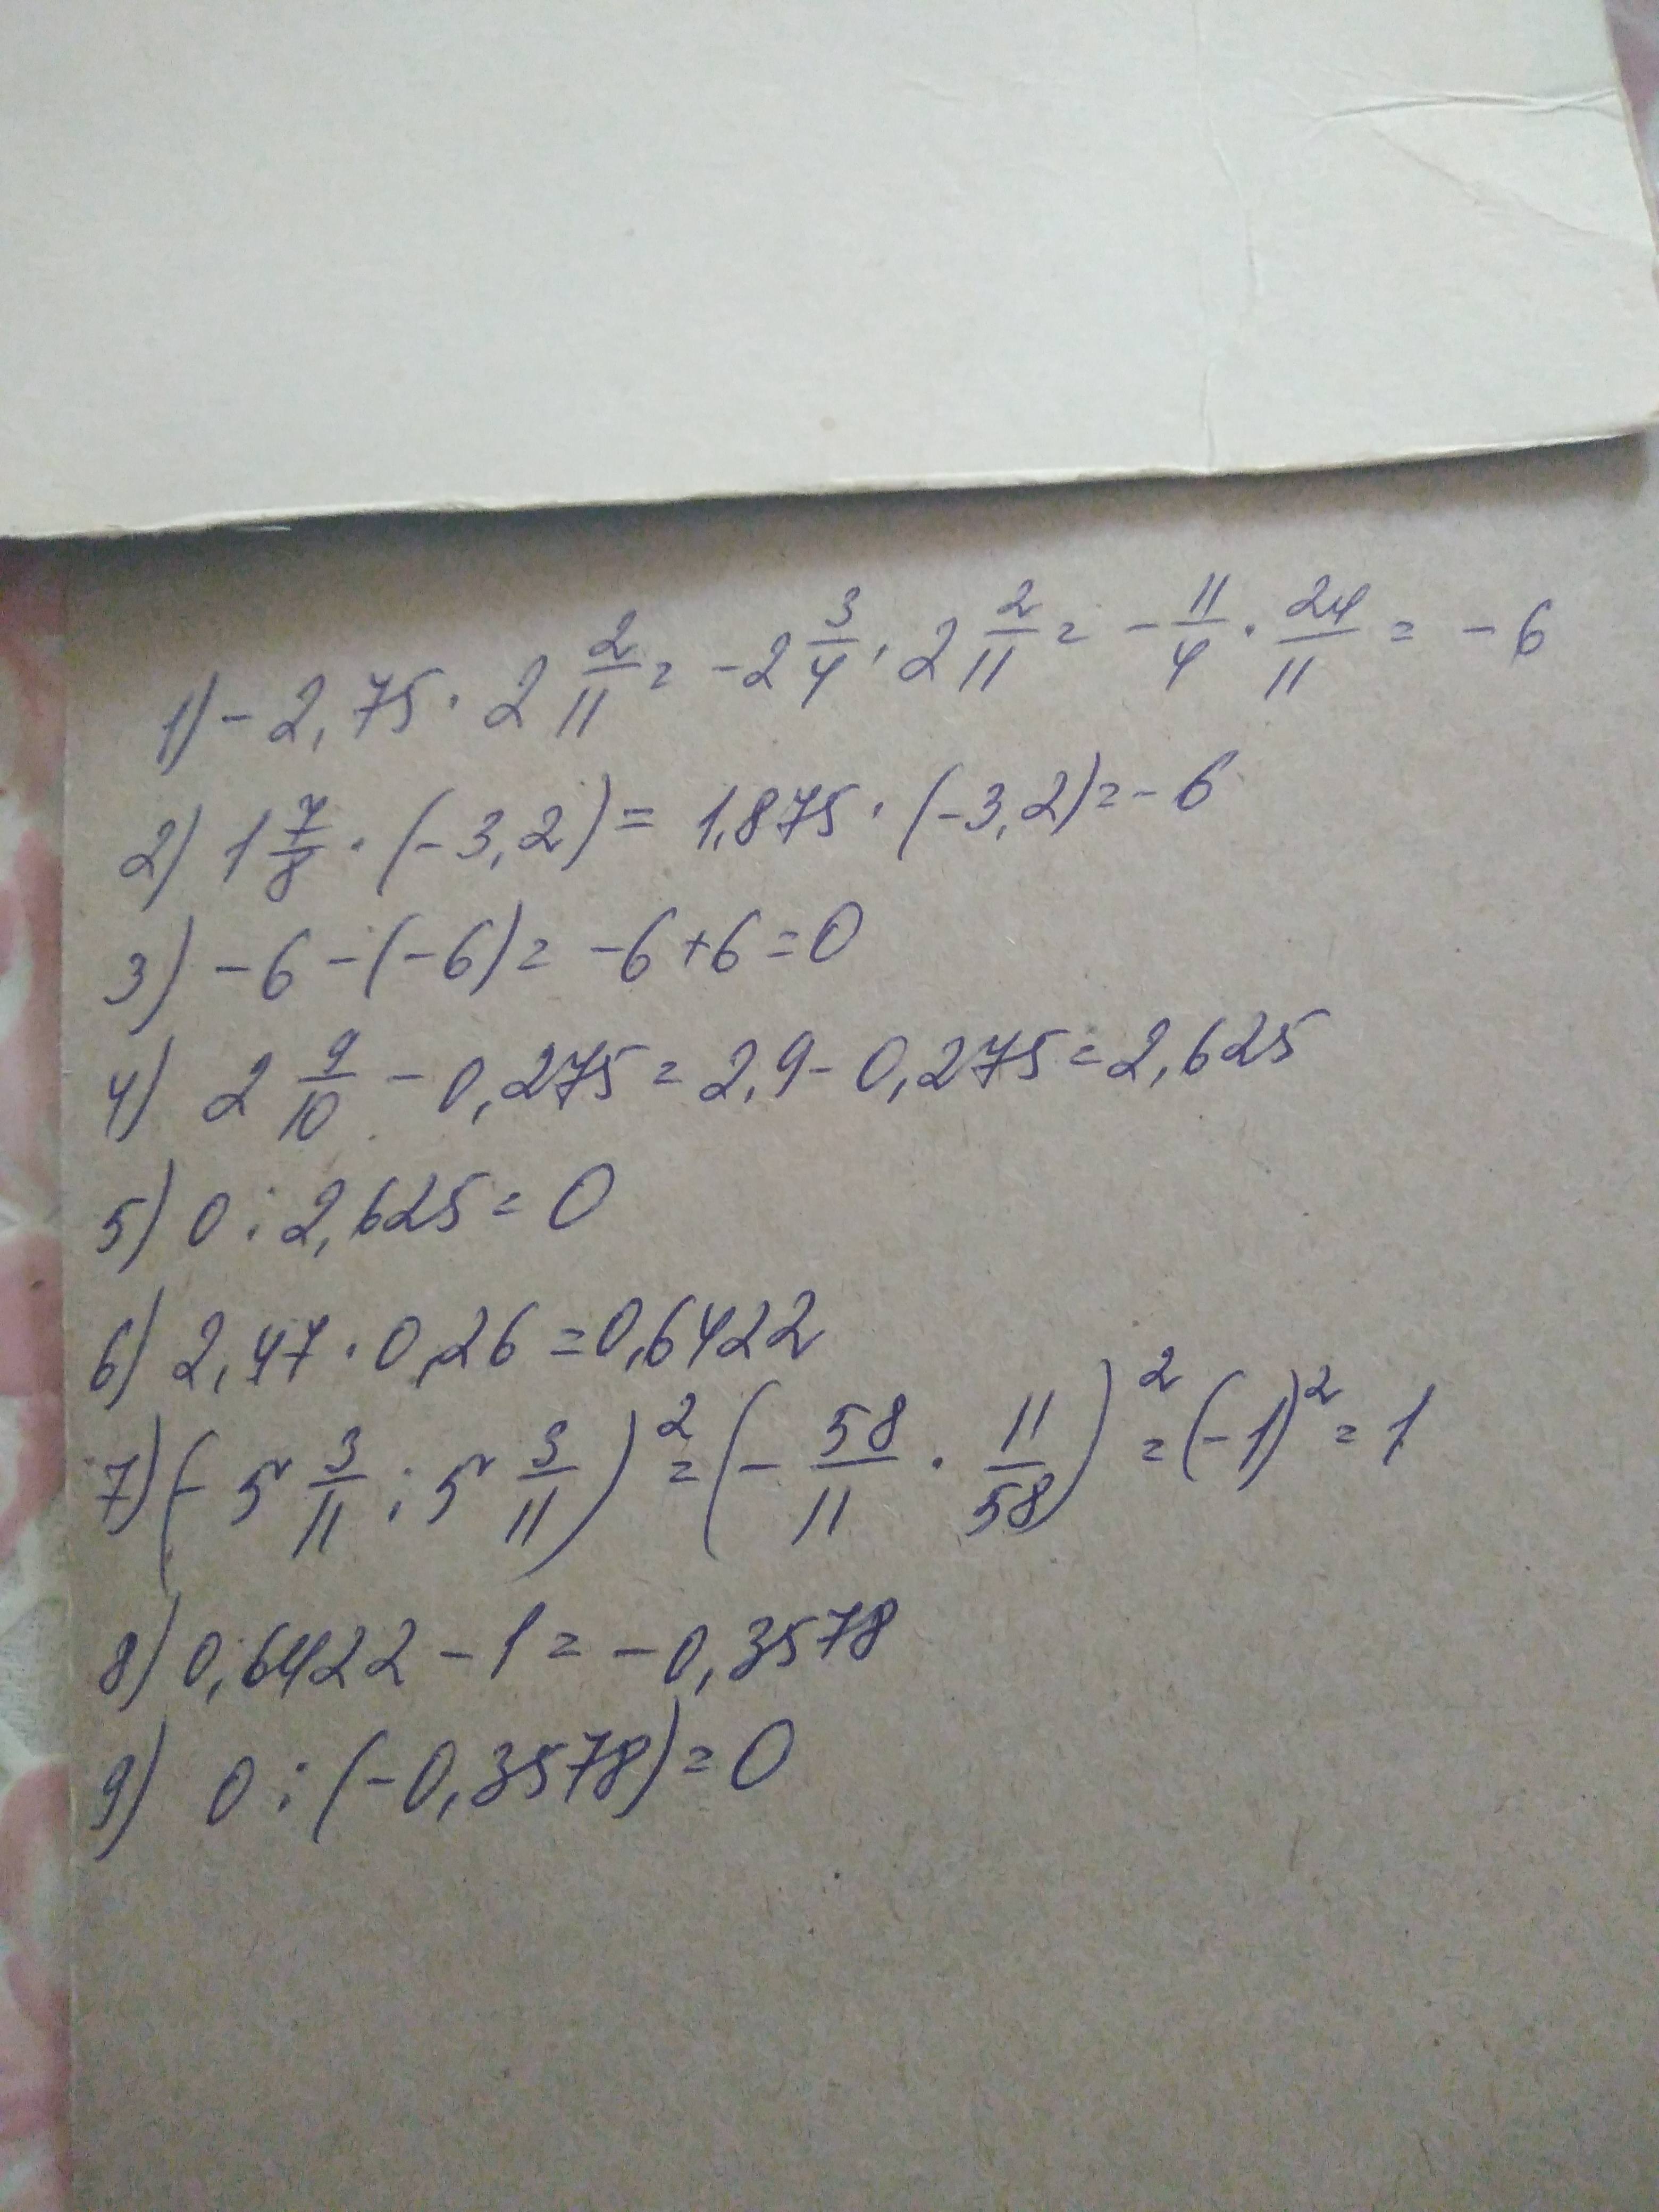 1) - 2,75 · 2 2/11 = -2 3/4 · 2 2/11 = - 11/4 · 24/11 = - 6
2) 1 7/8 · (- 3,2) = 1,875 · (-3,2) = - 6
3) - 6 - (- 6) = -6 + 6 = 0
4) 2 9/10 - 0,275 = 2,9 - 0,275 = 2,625
5) 0 : 2,625 = 0
6) 2,47 · 0,26 = 0,6422
7) (- 5 3/11 : 5 3/11)² = (- 58/11 · 11/58)² = (-1)² = 1
8) 0,6422 - 1 = - 0,3578
9) 0 : (-0,3578) = 0